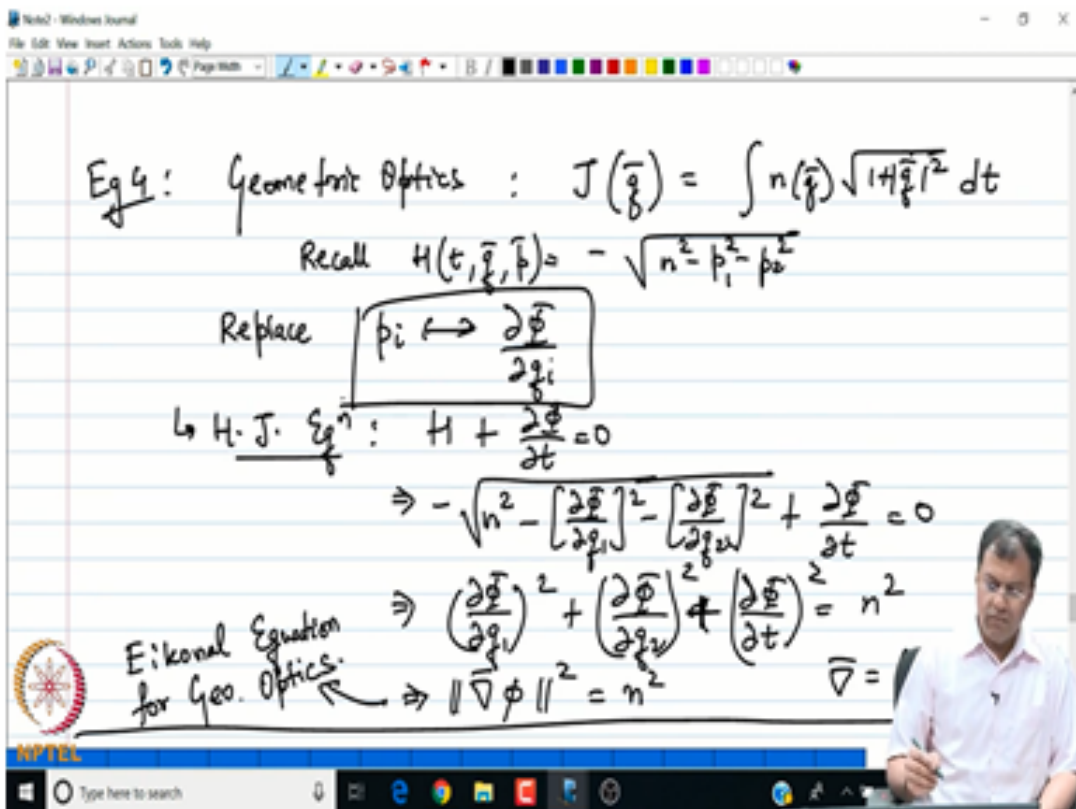 Note2 - Windows Journal
File Edit View Insert Actions Tools Help
Page Width B I
Eg 4 : Geometric Optics : J(q̄) = ∫ n(q̄) √1+|q̄̇|² dt
Recall H(t, q̄, p̄) = - √n² - p₁² - p₂²
Replace pᵢ ↔ ∂Φ/∂qᵢ
↳ H. J. Eqⁿ : H + ∂Φ/∂t = 0
⇒ - √n² - [∂Φ/∂q₁]² - [∂Φ/∂q₂]² + ∂Φ/∂t = 0
⇒ (∂Φ/∂q₁)² + (∂Φ/∂q₂)² + (∂Φ/∂t)² = n²
Eikonal Equation
for Geo. Optics. ⇒ ||∇̄ϕ||² = n² ∇̄ =
NPTEL
Type here to search